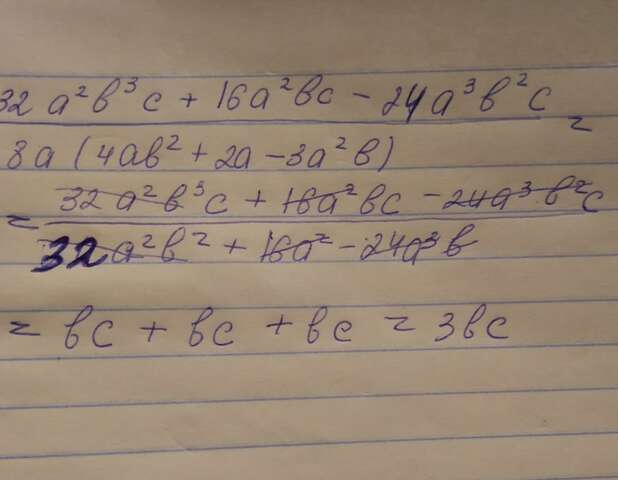 32 a²в³c + 16a²вc - 24a³в²c =
8a (4aв² + 2a - 3a²в)
= 32 a²в³c + 16a²вc - 24a³в²c
32a²в² + 16a² - 24a³в
= вc + вc + вc = 3вc